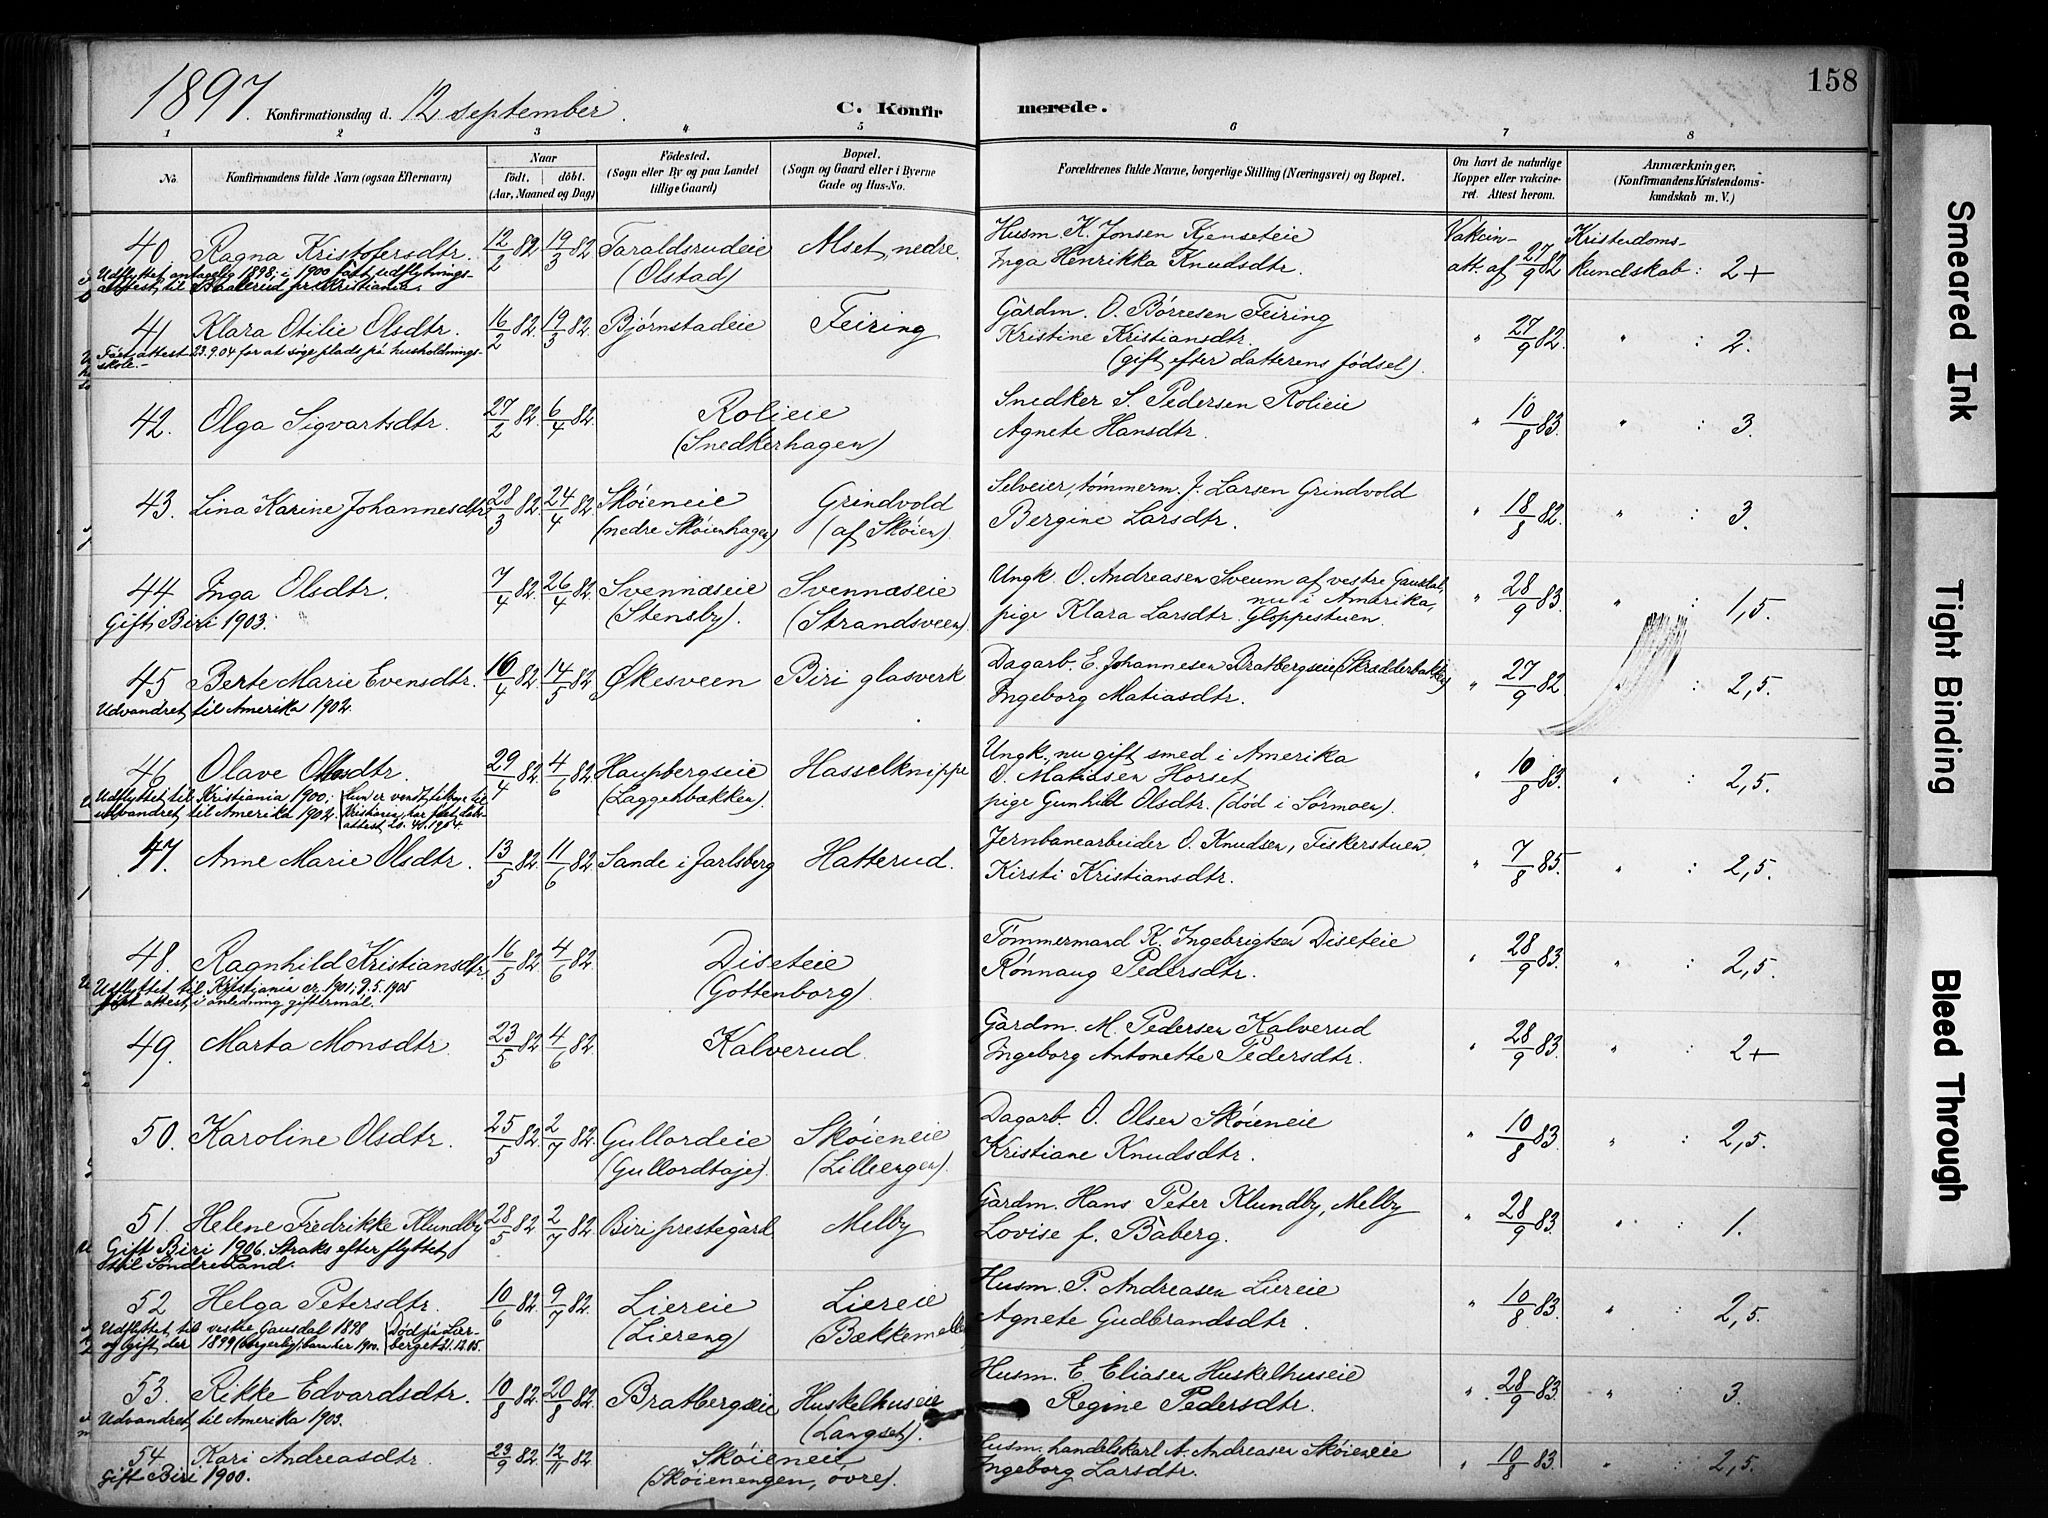 1897. Konfirmationsdag d. 12 september. C. Konfirmerede. 158
1 2 3 4 5 6 7 8
No. Konfirmandens fulde Navn (ogsaa Efternavn) Naar födt. döbt. (Aar, Maaned og Dag) Födested. (Sogn eller By og paa Landet tillige Gaard) Bopæl. (Sogn og Gaard eller i Byerne Gade og Hus-No. Forældrenes fulde Navne, borgerlige Stilling (Næringsvei) og Bopæl. Om havt de naturlige Kopper eller vakcineret. Attest herom. Anmærkninger, (Konfirmandens Kristendomskundskab m. V.)
40. Ragna Kristofersdtr. 12/2 82 19/3 82 Taraldsrudeie (Olstad) Alset, nedre. Husm. K. Jonsen Kjenseteie Inga Henrikka Knudsdtr. Vakcin-att. af 27/9 82 Kristendoms-kundskab: 2+
Udflyttet antagelig 1898; i 1900 fått udflytnings-
attest til Baalerud pr. Kristiania.
41. Klara Otilie Olsdtr. 16/2 82 19/3 82 Bjørnstadeie Feiring Gårdm. O. Børresen Feiring Kristine Kristiansdtr. (gift efter datterens fødsel). " 27/9 82. " : 2.
Fået attest 23.9.04 for at söge plads på husholdnings-
skole.-
42. Olga Sigvartsdtr. 27/2 82. 6/4 82. Rolieie (Snedkerhagen) Snedker S. Pedersen Rolieie Agnete Hansdtr. " 10/8 83. " : 3.
43. Lina Karine Johannesdtr. 28/3 82 24/4 82 Skøieneie (nedre Skøienhagen) Grindvold (af Skøien). Selveier, tømmerm. J. Larsen Grindvold Bergine Larsdtr. " 18/8 82. " : 3.
44 Inga Olsdtr. 7/4 82. 26/4 82. Svennæseie (Stensby). Svennæseie (Strandsveen) Ungk. O. Andreasen Sveum af vestre Gausdal, nu i Amerika, pige Klara Larsdtr. Gloppestuen. " 28/9 83. " : 1,5.
Gift, Biri 1903.
45 Berte Marie Evensdtr. 16/4 82. 14/5 82 Økesveen Biri glasverk Dagarb. E. Johannesen Bratbergseie (Skrædderbakken) Ingeborg Matiasdtr. " 27/9 82 " : 2,5.
Udvandret til Amerika 1902.
46 Olave Olsdtr. 29/4 82. 4/6 82. Haupbergseie (Laggerbækken). Hasselknippe Ungk., nu gift smed i Amerika O. Matiasen Horset pige Gunhild Olsdtr. (død i Sørmoen). " 10/8 83. " : 2,5.
Udflyttet til Kristiania 1900;
udvandret til Amerika 1902.
47. Anne Marie Olsdtr. 13/5 82. 11/6 82 Sande i Jarlsberg Hatterud. Jernbanearbeider O. Knudsen, Fiskerstuen. Kirsti Kristiansdtr. " 7/8 85. " : 2,5.
48. Ragnhild Kristiansdtr. 16/5 82 4/6 82. Diseteie (Gottenborg). Tømmermand K. Ingebrigtsen Diseteie Rønnaug Pedersdtr. " 28/9 83. " : 2,5.
Udflyttet til Kristiania cr. 1901; 9.5.1905
fået attest i anledning giftermål.
49. Marta Monsdtr. 23/5 82 4/6 82. Kalverud. Gårdm. M. Pedersen Kalverud Ingeborg Antonette Pedersdtr. " 28/9 83. " : 2+
50. Karoline Olsdtr. 25/5 82. 2/7 82. Gullordeie (Gullordtajet). Skøieneie (Lilleengen). Dagarb. O. Olsen Skøieneie Kristiane Knudsdtr. " 10/8 83. " : 2,5.
51. Helene Fredrikke Klundby 28/5 82. 2/7 82. Biri prestegård Melby Gårdm. Hans Peter Klundby, Melby Lovise f. Båberg. " 28/9 83. " : 1.
Gift Biri 1906. Straks efter flyttet
til Söndre Land.
52 Helga Petersdtr. 10/6 82. 9/7 82. Liereie (Liereng) Liereie Bækkemellem Husm. P. Andreasen Liereie Agnete Gudbrandsdtr. " 10/8 83. " : 2,5.
Udflyttet til vestre Gausdal 1898 Död på Lier-
og gift der 1899 berget 21.12.05.
53. Rikke Edvardsdtr. 10/8 82. 20/8 82. Bratbergseie Huskelhuseie (Langset). Husm. E. Eliasen Huskelhuseie Regine Pedersdtr. " 28/9 83. " : 3.
Udvandret til Amerika 1903.
54. Kari Andreasdtr. 23/9 82. 12/11 82. Skøieneie (Skøienengen, övre). Husm. handelskarl A. Andreasen Skøieneie Ingeborg Larsdtr. " 10/8 83. " : 2,5.
Gift Biri 1900.
Smeared Ink
Tight Binding
Bleed Through